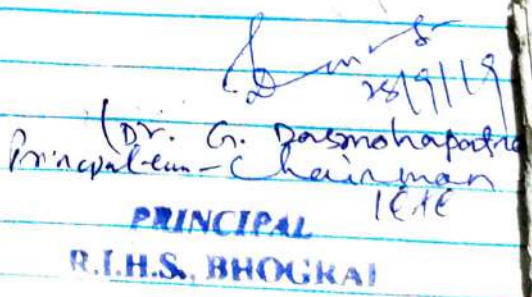 28/9/19
(Dr. G. Dasmohapatra
Principal-cum-Chairman
PRINCIPAL
R.I.H.S., BHOGRAI